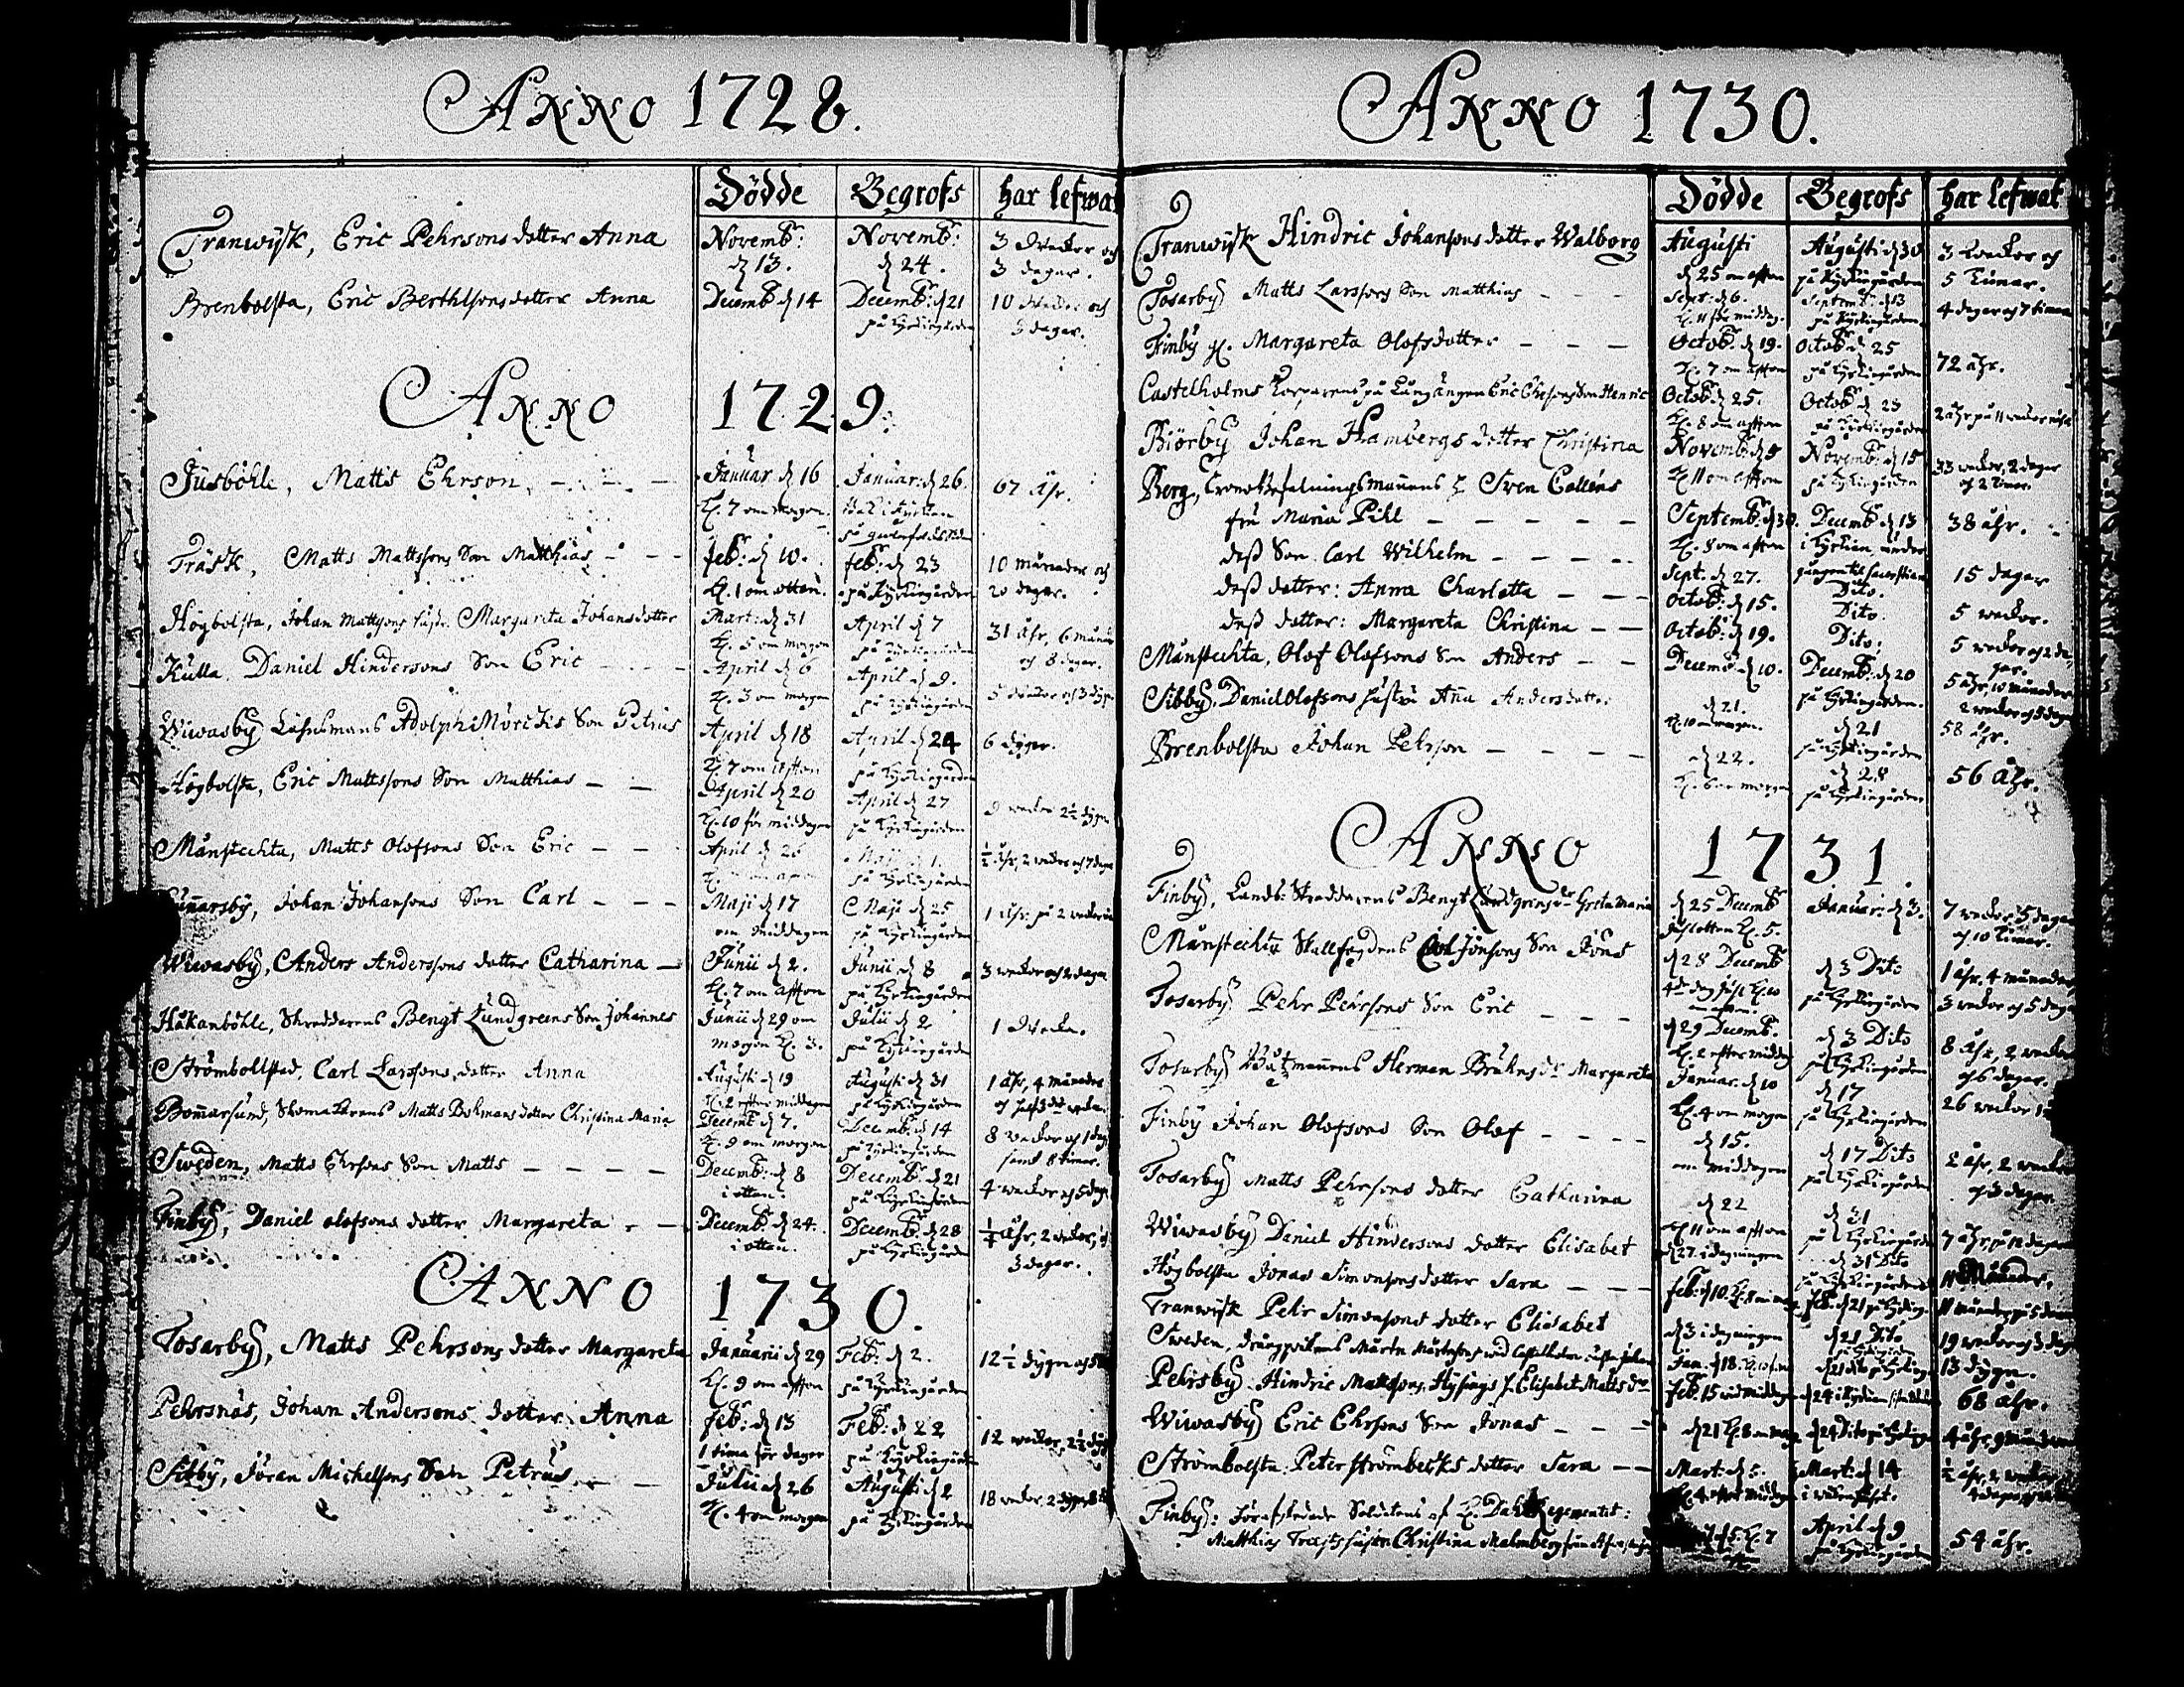 Anno 1728.
Dödde Begrofs har lefwat
Tranwijk, Eric Pehrsons dotter Anna Novemb: Novemb: 3 wecker och
d 13. d 24. 3 dagar.
Brenbolsta, Eric Berthlsons dotter Anna Decemb d 14 Decemb: d 21 10 wecker och
på kyrkiogården 3 dagar.
Anno 1729.
Jusböhle, Matts Ehrson Januar. d 16 Januar. d 26. 67 åhr.
kl. 7 om morgon.
Träsk, Matts Mattssons Son Matthias feb: d 10. feb: d 23 10 månader och
kl. 1 om otten. på kyrkiogården 20 dagar.
Högbolsta, Johan Mattsons hustr. Margareta Johansdotter Mart: d 31 April d 7 31 åhr, 6 månad
kl. 5 om morgon på kyrkiogården och 8 dagar.
Kulla, Daniel Hindersons Son Eric April d 6 April d 9.
kl. 3 om morgon på kyrkiogården
Wiwasby Länsmans Adolphi Son Petrus April d 18 April d 24 6 dygn.
kl. 7 om afton på kyrkiogården
Högbolsta, Eric Mattssons Son Matthias April d 20 April d 27 9 wecker 2½ dygn
kl. 10 för middagen på kyrkiogården
Månstechta, Matts Olofsons Son Eric April d 26 Maji d 1. ½ åhr, 2 wecker och 7 dagar
på kyrkiogården
Johan Johansons Son Carl Maji d 17 Maji d 25
om middagen på kyrkiogården
Wiwasby, Anders Anderssons dotter Catharina Junii d 2. Junii d 8 3 wecker och 2 dagar
kl. 7 om afton på kyrkiogården
Håkanböhle, Skreddarens Bengt Lundgrens Son Johannes Junii d 29 om Julii d 2 1 wecka.
morgon kl. 3. på kyrkiogården
Strömbollstad, Carl Larssons dotter Anna Augusti d 19 Augusti d 31 1 åhr, 4 månader
kl. 2 efter middagen på kyrkiogården
Bomarsund, Skomakarens Matts Bokmans dotter Christina Maria Decemb d 7. Decemb: d 14 8 wecker och 1 dag
kl. 9 om morgon på kyrkiogården samt 8 timar.
Sweden, Matts Ehrsons Son Matts Decemb: d 8 Decemb: d 21 4 wecker och 5 dagar
i otten. på kyrkiogården
Finby, Daniel olofsons dotter Margareta Decemb: d 24. Decemb: d 28 ¼ åhr, 2 wecker, och
i otten. på kyrkiogården 3 dagar.
Anno 1730.
Tosarby, Matts Pehrsons dotter Margareta Januarii d 29 Feb: d 2. 12½ dygn
kl. 9 om afton på kyrkiogården
Pehrsnäs, Johan Andersons dotter Anna feb: d 13 Feb: d 22 12 wecker, 2½
1 tima för dager på kyrkiogården
Sibby, Jöran Michelsons Son Petrus Julii d 26 Augusti d 2 18 wecker 2 dygn
kl. 4 om morgon på kyrkiogården
Anno 1730.
Dödde Begrofs har lefwat
Tranwijk Hindric Johansons dotter Walborg Augusti Augusti d 30 3 wecker och
d 25 om afton på kyrkiogården 5 timar.
Tosarby Matts Larssons Son Matthias Sept: d 6. Septemb: d 13 4 dagar och 7 timar
kl. 11 för middag. på kyrkiogården
Finby gl. Margareta Olofsdotter Octob. d 19. Octob: d 25 72 åhr.
kl. 7 om afton på kyrkiogården
Castelholms på Eric Son Henric Octob: d 25. Octob d
kl. 8 om afton på kyrkiogården
Biörby Johan Hambergs dotter Christina Novemb. d 5 Novemb: d 15 33 wecker, 2 dagar
kl 11 om afton på kyrkiogården och 2 timar.
Berg, Crono Befalningsmannens h. Sven Calléns
fru Maria Pihl Septemb: d 30. Decemb: d 13 38 åhr.
kl. 8 om afton i kyrkian under
dess Son Carl Wilhelm Sept. d 27. Dito. 15 dagar
dess dotter: Anna Charlotta Octob: d 15. Dito. 5 wecker.
dess dotter: Margareta Christina Octob: d 19. Dito. 5 wecker och 2 dagar.
Månstechta, Olof Olofsons Son Anders Decemb. d 10. Decemb: d 20 5 åhr, 10 månader
på kyrkiogården. 2 wecker och 5 dagar
Sibby, Daniel Olofsons hustru Anna Andersdotter d 21. d 21 58 åhr.
kl. 10 om morgon. på kyrkiogården
Brenbolsta Johan Pehrson d 22. d 28 56 åhr.
kl. 6 om morgon på kyrkiogården
Anno 1731.
Finby, Lands-Skreddarens Bengt Lundgrens dr Greta Maria d 25 Decemb Januar: d 3. 7 wecker 5 dagar
Juhlotten kl. 5. och 10 timar.
Månstechta Stallfogdens Jönsons Son Jöns d 28 Decemb d 3 Dito 1 åhr. 4 månader,
på kyrkiogården 3 wecker och 5 dagar
Tosarby Pehr Pehrsons Son Eric d 29 Decemb. d 3 Dito 8 åhr, 2 wecker
kl. 2 efter middag på kyrkiogården och 6 dagar.
Tosarby Båtzmannens Herman Bruhns dr Margareta Januar. d 10 d 17 26 wecker
kl. 4 om morgon på kyrkiogården
Finby Johan Olofsons Son Olof d 15. d 17 Dito åhr, 2 wecker
om middagen på kyrkiogården och 3 dagar
Tosarby Matts Pehrsons dotter Catharina d 22 d 31
kl 11 om afton på kyrkiogården
Wiwasby Daniel Hindersons dotter Elisabet d 27. i dagningen d 31 Dito 11 Månader.
på kyrkiogården
Högbolsta Jonas Simonsons dotter Sara feb: d 10. feb: d 21
Tranwijk Pehr Simonsons dotter Elisabet d 3 i dagningen d 21 Dito 19 wecker och 3 dagar
Sweden, Mårten Mårtensons Jan. d 18. d 21 dito 13 dygn.
Pehrsby Hindric Mattsons, h. Elisabet Matts dr Feb 15 wid middagen d 24 i kyrkian 68 åhr.
Wiwasby Eric Ehrsons Son Jonas d 21 d 24 Dito 4 åhr, 9 månader
Strömbolsta Peter Strömbecks dotter Sara Mart: d 5. Mart: d 14 ½ åhr, 2 wecker
kl. 4 efter middag
Finby: förafskedade Soldatens af Dahl Regementet:
Matthias hustru Christina Malmberg kl. 7 April d 9 54 åhr.
på kyrkiogården